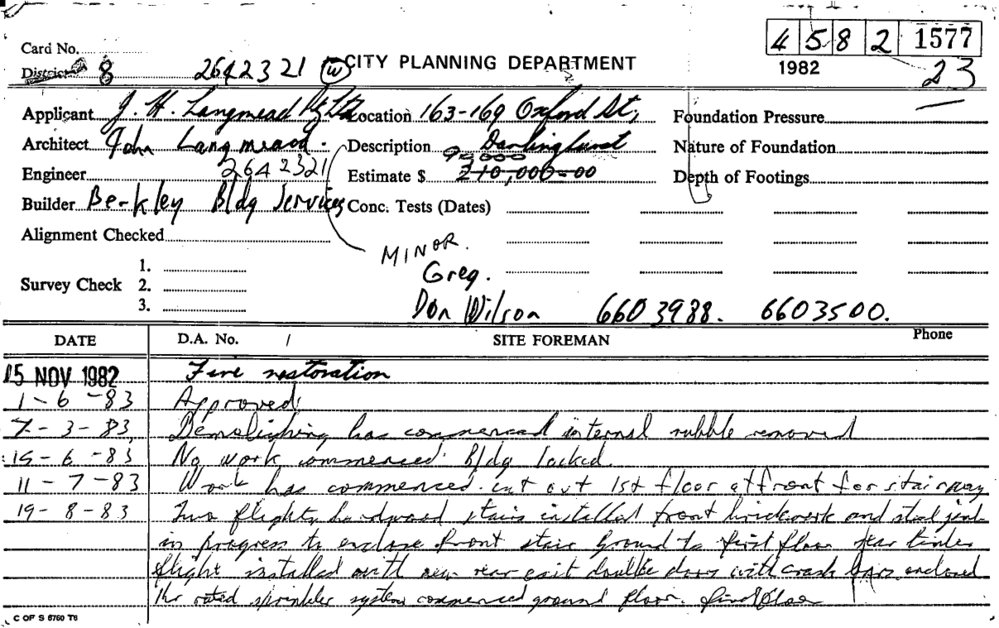 4 5 8 2 1577
Card No.
CITY PLANNING DEPARTMENT
1982
District 8 2642321 (W)
23
Applicant J. H. Langmead P/Ltd Location 163-169 Oxford St, Foundation Pressure
Architect John Langmead. Description Darlinghurst Nature of Foundation
90,000
Engineer 2642321 Estimate $ 210,000-00 Depth of Footings
Builder Berkley Bldg Services Conc. Tests (Dates)
Alignment Checked
MINOR.
1.
Greg.
Survey Check 2.
3. Don Wilson 660 3988. 660 3500.
DATE D.A. No. / SITE FOREMAN Phone
15 NOV 1982 Fire restoration
1-6-83 Approved.
7-3-83, Demolishing has commenced internal rubble removed
15-6-83 No work commenced. Bldg locked.
11-7-83 Work has commenced. cut out 1st floor at front for stairway
19-8-83 Two flights hardwood stairs installed front brickwork and
in progress to enclose front stair ground to first floor rear timber
flight installed with new rear exit double doors with crash bars enclosed
1hr rated sprinkler system commenced ground floor. first floor
C OF S 5760 T6